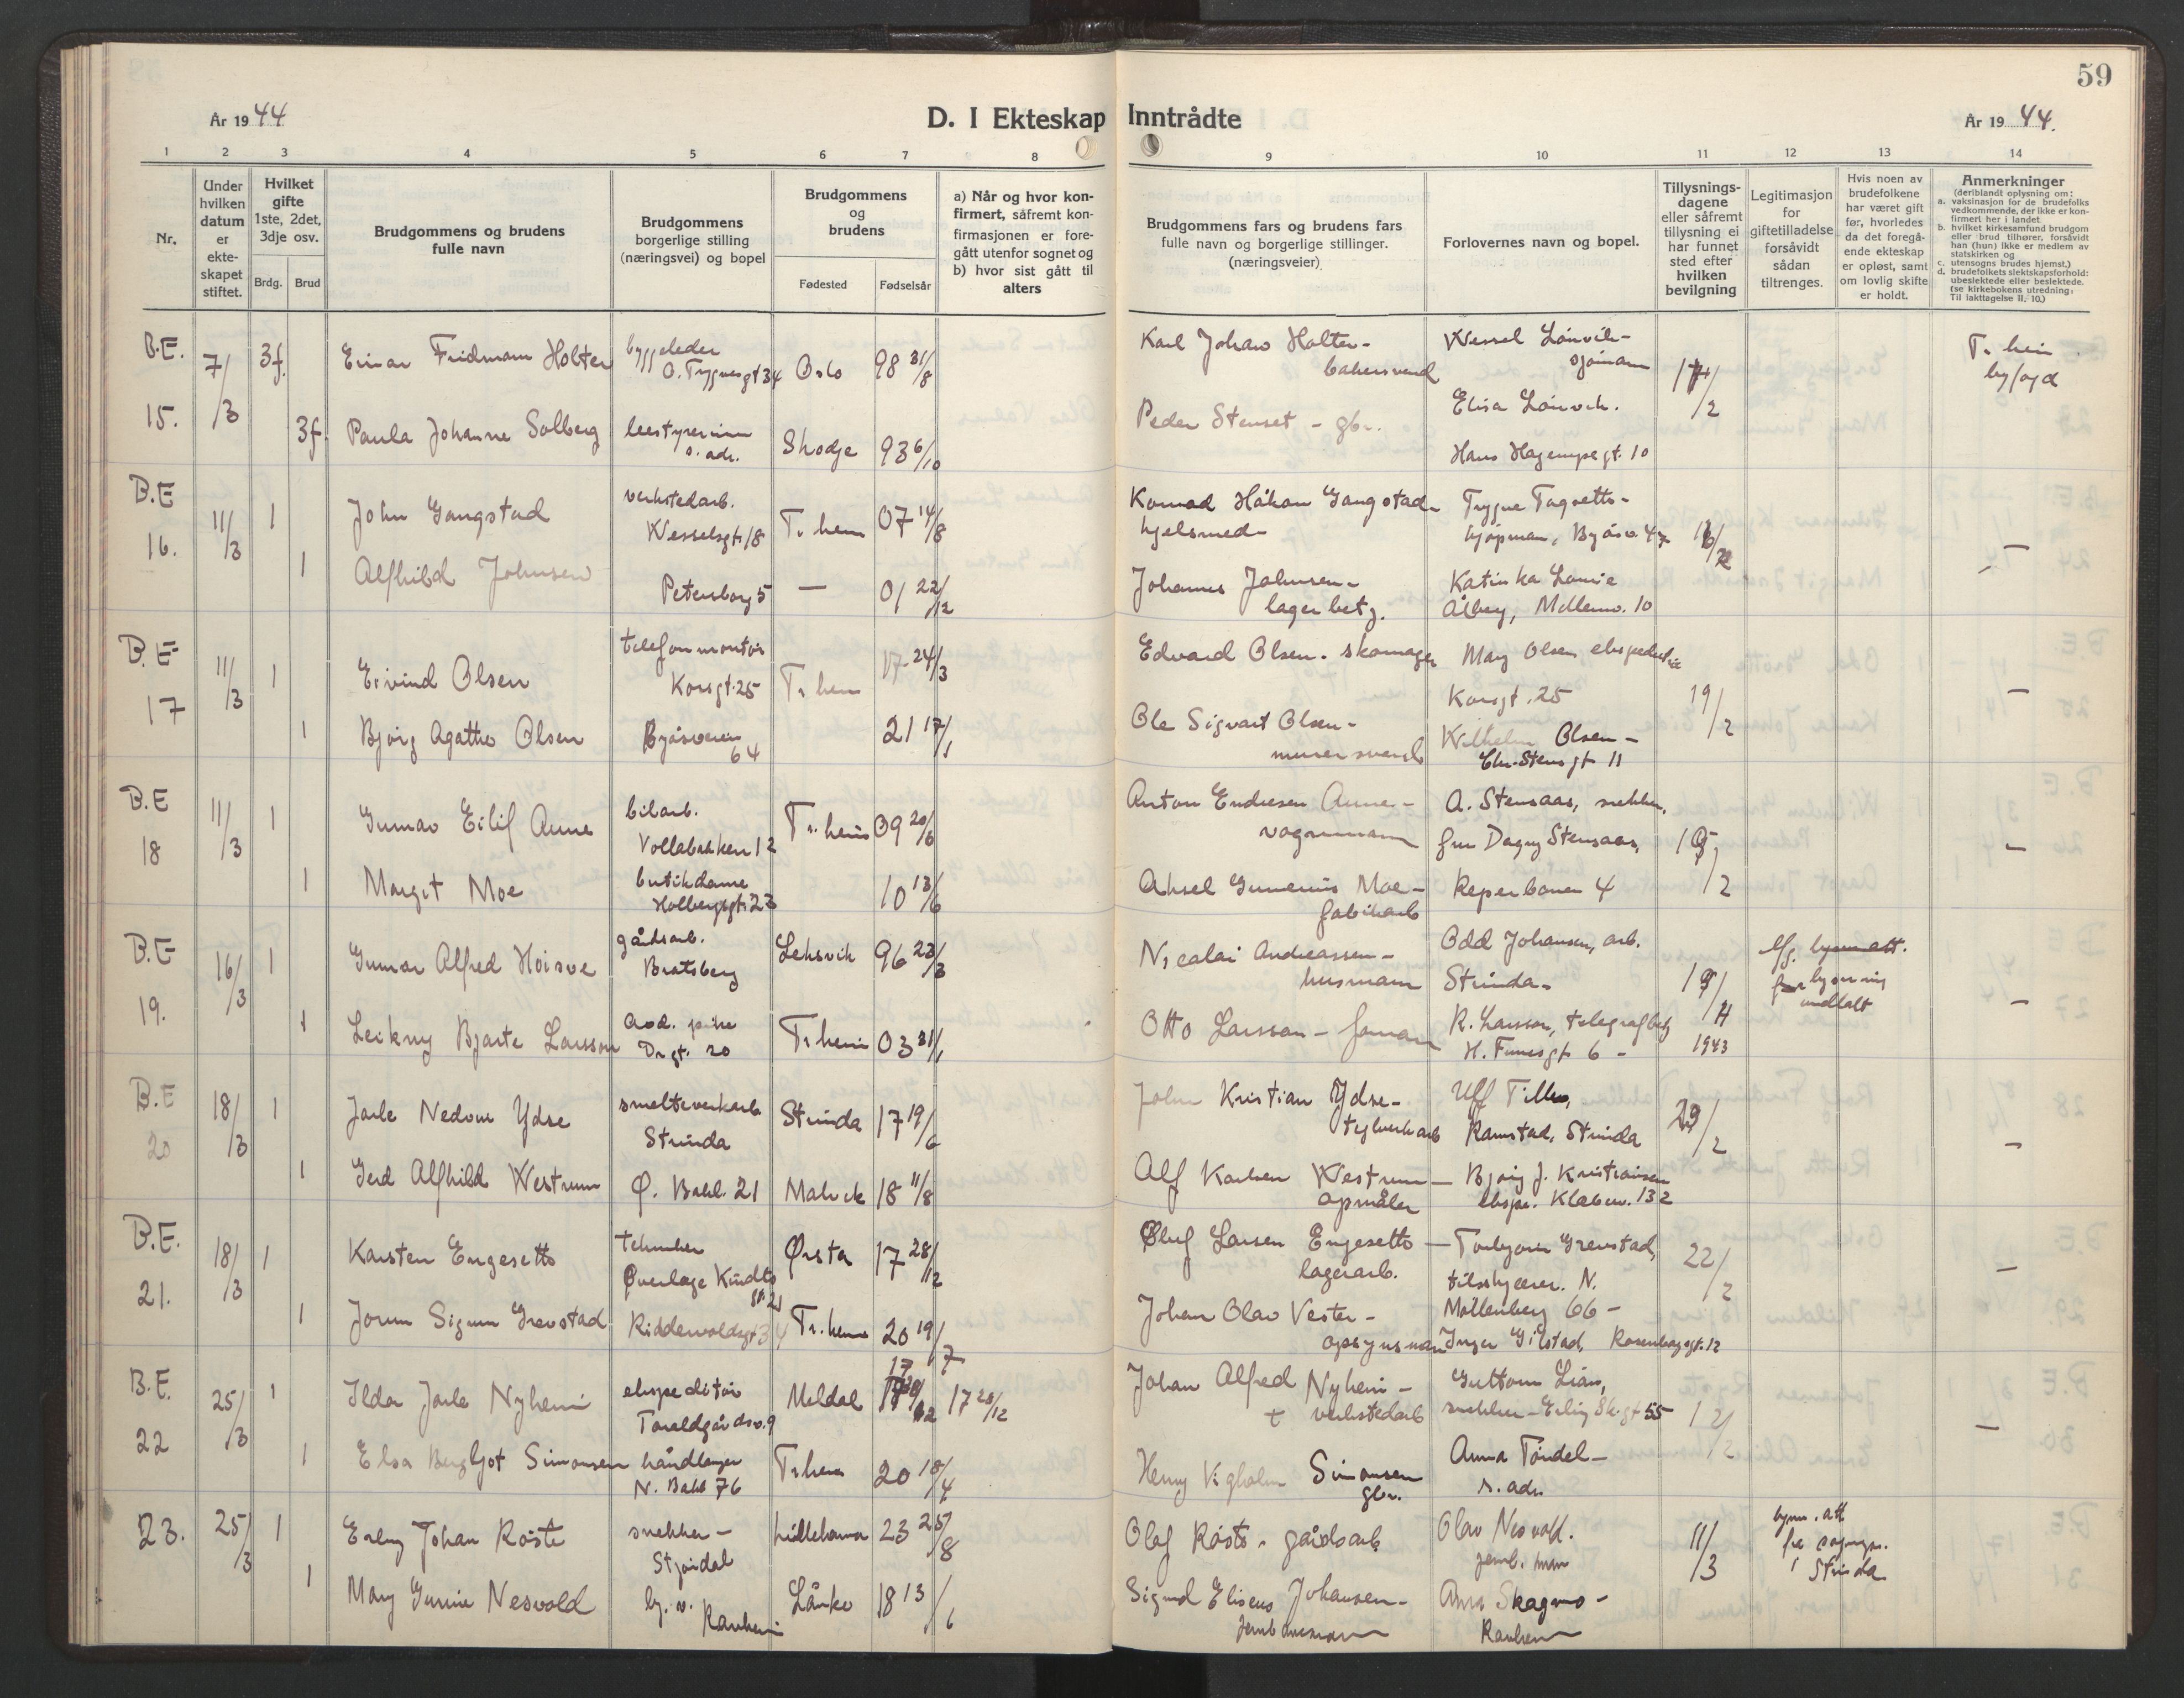 59
År 1944
D. I Ekteskap Inntrådte
År 1944.
1 2 3 4 5 6 7 8 9 10 11 12 13 14
Nr.
Under hvilken datum er ekteskapet stiftet.
Hvilket gifte 1ste, 2det, 3dje osv.
Brdg. Brud
Brudgommens og brudens fulle navn
Brudgommens borgerlige stilling (næringsvei) og bopel
Brudgommens og brudens
Fødested Fødselsår
a) Når og hvor konfirmert, såfremt konfirmasjonen er foregått utenfor sognet og b) hvor sist gått til alters
Brudgommens fars og brudens fars fulle navn og borgerlige stillinger. (næringsveier)
Forlovernes navn og bopel.
Tillysningsdagene eller såfremt tillysning ei har funnet sted efter hvilken bevilgning
Legitimasjon for giftetilladelse forsåvidt sådan tiltrenges.
Hvis noen av brudefolkene har været gift før, hvorledes da det foregående ekteskap er opløst, samt om lovlig skifte er holdt.
Anmerkninger (deriblandt oplysning om: a. vaksinasjon for de brudefolks vedkommende, der ikke er konfirmert her i landet b. hvilket kirkesamfund brudgom eller brud tilhører, forsåvidt han (hun) ikke er medlem av statskirken og c. utensogns brudes hjemst.) d. brudefolkets slektskapsforhold: ubeslektede eller beslektede. (se kirkebokens utredning: Til iakttagelse II. 10.)
B.E. 15. 7/3 3f. Einar Fridmann Holter byggeleder O. Trygvesgt 34 Oslo 98 31/8 Karl Johan Holter - bakersvend Wessel Lønvik - sjømann 17/2 Tr.heim byfogd
3f. Paula Johanne Solberg s. adr. Skodje 93 6/10 Peder Stenset - gbr. Elisa Lønvik.
Hans Hagerupsgt. 10
B.E 16. 11/3 1 John Gangstad verkstedarb. Wesselsgt. 18 Tr.heim 07 14/8 Konrad Håkon Gangstad - hjelsmed - Trygve - kjøpman, Byåsv. 47 —
1 Alfhild Johnsen Petersborg 5 — 01 22/12 Johannes Johnsen - lagerbetj. Katinka Lovise Ålberg, Mellemv. 10
B.E 17 11/3 1 Eivind Olsen telefonmontør Korsgt. 25 Tr.heim 17 24/3 Edvard Olsen - skomager Mary Olsen Korsgt. 25 19/2 —
1 Bjørg Agathe Olsen Byåsveien 64 21 17/1 Ole Sigvart Olsen - murersvend Wilhelm Olsen - Chr. Stensgt 11
B.E 18 11/3 1 Gunnar Eilif Aune bilarb. Vollabakken 12 Tr.heim 09 20/6 Anton Endresen Aune - vognmann A. Stensaas, snekker, —
1 Margit Moe butikdame Holbergsgt. 23 10 13/6 Aksel Gunerius Moe - fabrikarb fru Dagny Stensaas, Reperbanen 4
B.E 19. 16/3 1 Gunnar Alfred Høisve gårdsarb. Bratsberg Leksvik 96 23/3 Nicolai Andreassen - husmann Odd Johansen, arb. Strinda - 1943 —
1 Leikny Bjarte Larsson Tr.heim 03 31/1 Otto Larsson - R. Larsson, telegrafbetj H. Finnesgt 6 -
B.E 20 18/3 1 Jarle Nedom Ydse smelteverkarb Strinda Strinda 17 19/6 John Kristian Ydse - teglverkarb Uff Tiller, Ranstad, Strinda 29/2 —
1 Gerd Alfhild Westrum Ø. Bakl. 21 Malvik 18 11/8 Alf Karlsen Westrum - opmåler Bjørg J. Kristiansen eksp. Klæbuv. 132
B.E. 21. 18/3 1 Karsten Engesetto tekniker Overlege Kindts gt. 21 Ørsta 17 28/12 Oluf Larsen Engesetto - lagerarb. Torbjørn Grevstad, tilskjærer. N. Møllenberg 66 - 22/2 —
1 Jorun Sigrun Grevstad Riddervoldsgt 34 Tr.heim 20 19/7 Johan Olav Vester - opsynsman Inger Gilstad, Rosenborggt. 12
B.E. 22 25/3 1 Ildor Jarle Nyheim ekspeditør Taraldgårdsv. 9 Meldal 17 28/12 Johan Alfred Nyheim - verkstedarb Guttorm Lian, snekker - Erling Sk.gt 55 —
1 Elsa Bergljot Simonsen håndlanger N. Bakl 76 Tr.heim 20 18/4 Henry Vigholm Simonsen gbr. Anna Tøndel - s. adr.
23. 25/3 1 Erling Johan Røste snekker - Stjørdal Lillehamar 23 25/8 Olaf Røste - gårdsarb Olav Nesvold. jernb. man 11/3 lysn. att fra sognepr. i Strinda
1 Mary Gurine Nesvold Ranheim Lånke 18 13/6 Sigurd Eliseus Johansen - Jernbanemann Anna Skagmo - Ranheim